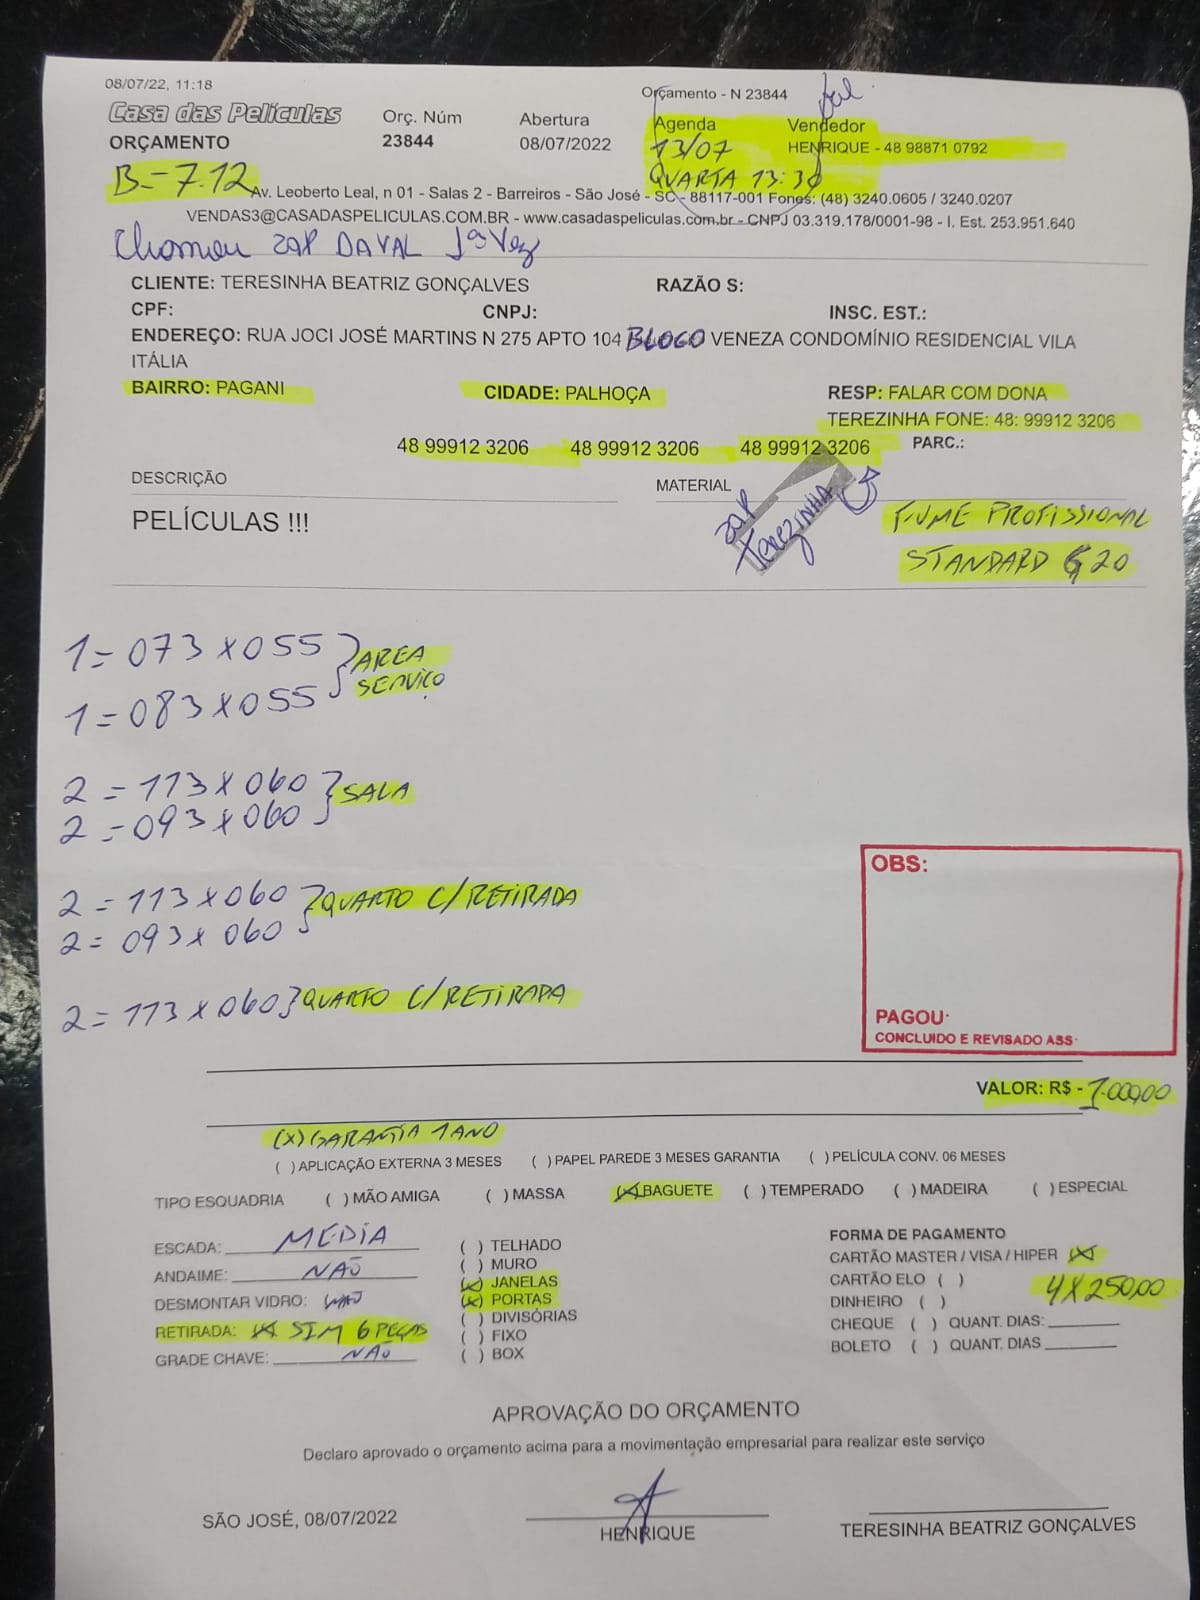 08/07/22, 11:18
Orçamento - N 23844
Casa das Películas
Orç. Núm
Abertura
Agenda
Vendedor
ORÇAMENTO
23844
08/07/2022
13/07
HENRIQUE - 48 98871 0792
QUARTA 13:30
B=7.12
Av. Leoberto Leal, n 01 - Salas 2 - Barreiros - São José - SC - 88117-001 Fones: (48) 3240.0605 / 3240.0207
VENDAS3@CASADASPELICULAS.COM.BR - www.casadaspeliculas.com.br - CNPJ 03.319.178/0001-98 - I. Est. 253.951.640
Chamou zap DAVAL 1ª Vez
CLIENTE: TERESINHA BEATRIZ GONÇALVES
RAZÃO S:
CPF:
CNPJ:
INSC. EST.:
ENDEREÇO: RUA JOCI JOSÉ MARTINS N 275 APTO 104 BLOCO VENEZA CONDOMÍNIO RESIDENCIAL VILA
ITÁLIA
BAIRRO: PAGANI
CIDADE: PALHOÇA
RESP: FALAR COM DONA
TEREZINHA FONE: 48: 99912 3206
48 99912 3206
48 99912 3206
48 99912 3206
PARC.:
DESCRIÇÃO
MATERIAL
PELÍCULAS !!!
zap
Terezinha
FUME PROFISSIONAL
STANDARD G20
1=073x055
1=083x055
AREA
SERVIÇO
2=113x060
2=093x060
SALA
2=113x060
2=093x060
QUARTO C/RETIRADA
2=113x060 QUARTO C/RETIRADA
OBS:
PAGOU:
CONCLUIDO E REVISADO ASS:
VALOR: R$ - 1.000,00
(X) GARANTIA 1 ANO
( ) APLICAÇÃO EXTERNA 3 MESES ( ) PAPEL PAREDE 3 MESES GARANTIA ( ) PELÍCULA CONV. 06 MESES
TIPO ESQUADRIA ( ) MÃO AMIGA ( ) MASSA (X) BAGUETE ( ) TEMPERADO ( ) MADEIRA ( ) ESPECIAL
ESCADA: MEDIA
ANDAIME: NÃO
DESMONTAR VIDRO: NÃO
RETIRADA: (X) SIM 6 PEÇAS
GRADE CHAVE: NÃO
( ) TELHADO
( ) MURO
(X) JANELAS
(X) PORTAS
( ) DIVISÓRIAS
( ) FIXO
( ) BOX
FORMA DE PAGAMENTO
CARTÃO MASTER / VISA / HIPER (X)
CARTÃO ELO ( )
4X250,00
DINHEIRO ( )
CHEQUE ( ) QUANT. DIAS:
BOLETO ( ) QUANT. DIAS
APROVAÇÃO DO ORÇAMENTO
Declaro aprovado o orçamento acima para a movimentação empresarial para realizar este serviço
SÃO JOSÉ, 08/07/2022
HENRIQUE
TERESINHA BEATRIZ GONÇALVES